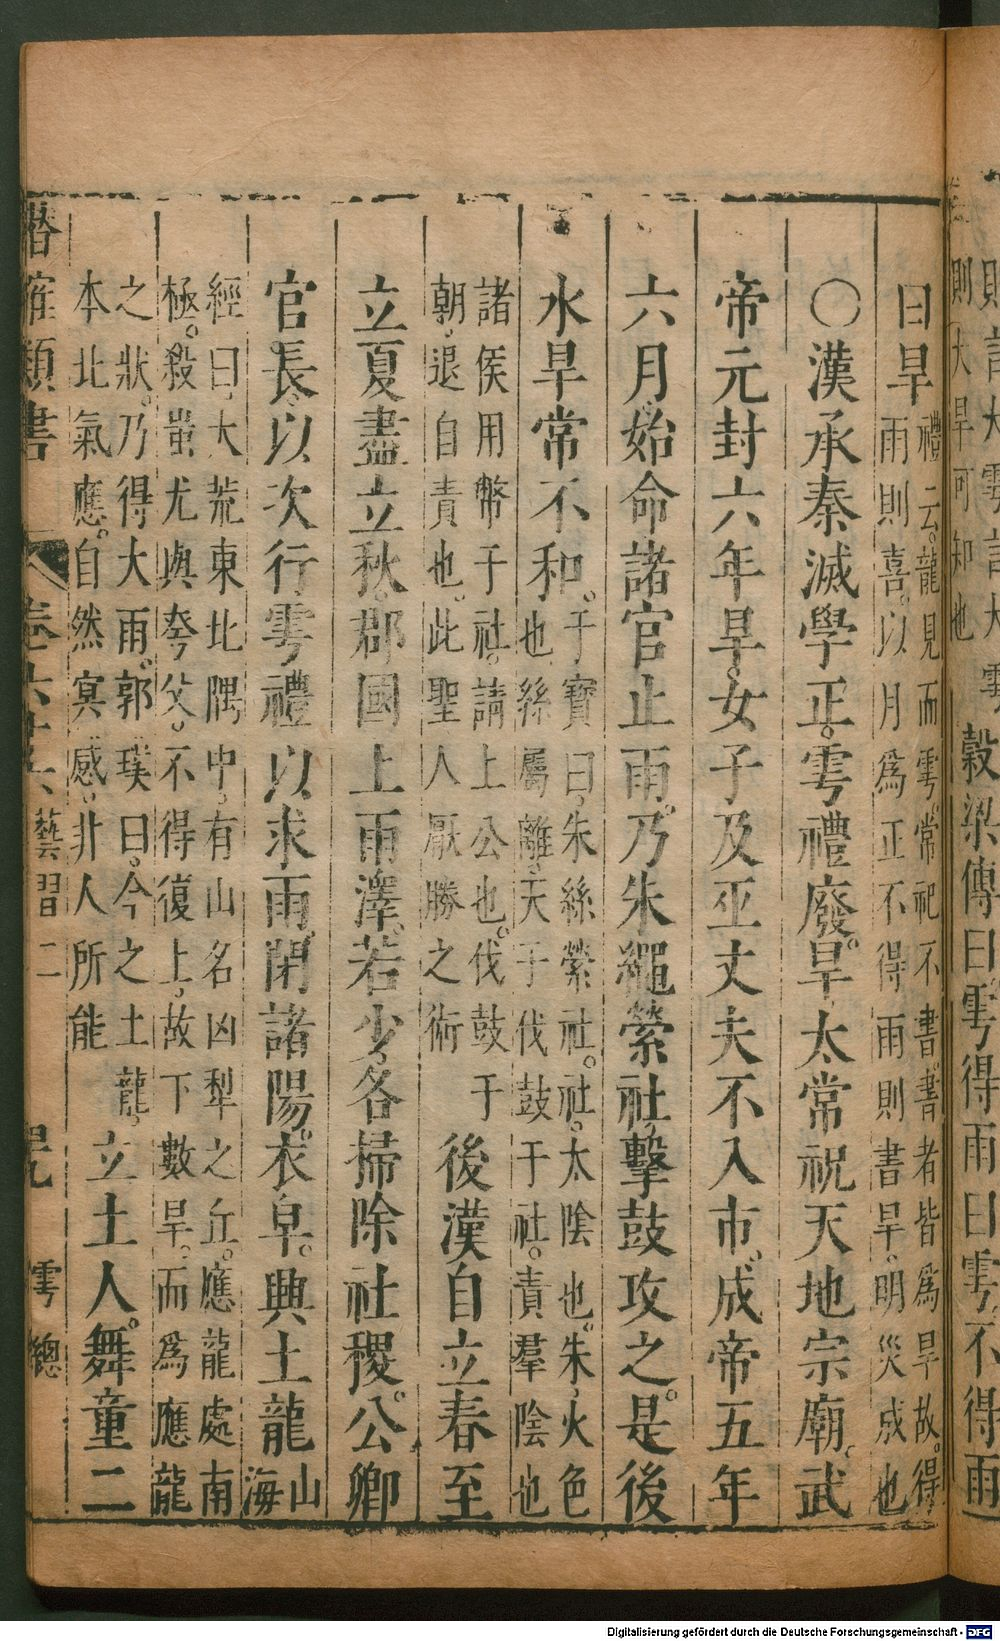 則言大雩言大雩
則大旱可知也
穀梁傳曰雩得雨曰雩不得雨
曰旱
禮云龍見而雩常祀不書書者皆爲旱故得
雨則喜以月爲正不得雨則書旱明災成也
〇漢承秦滅學正雩禮廢旱太常祝天地宗廟武
帝元封六年旱女子及巫丈夫不入市成帝五年
六月始命諸官止雨乃朱繩縈社擊鼓攻之是後
水旱常不和
于寶曰朱絲縈社社太陰也朱火色
也絲屬離天子伐鼓于社責羣陰也
諸侯用幣于社請上公也伐鼓于
朝退自責也此聖人厭勝之術
後漢自立春至
立夏盡立秋郡國上雨澤若少各掃除社稷公卿
官長以次行雩禮以求雨閉諸陽衣皁興土龍
山
海
經曰大荒東北隅中有山名凶犁之丘應龍處南
極殺蚩尤與夸父不得復上故下數旱而爲應龍
之狀乃得大雨郭璞曰今之土龍
本此氣應自然冥感非人所能
立土人舞童二
潛確類書
卷六十六
藝習二
雩總
Digitalisierung gefördert durch die Deutsche Forschungsgemeinschaft - DFG